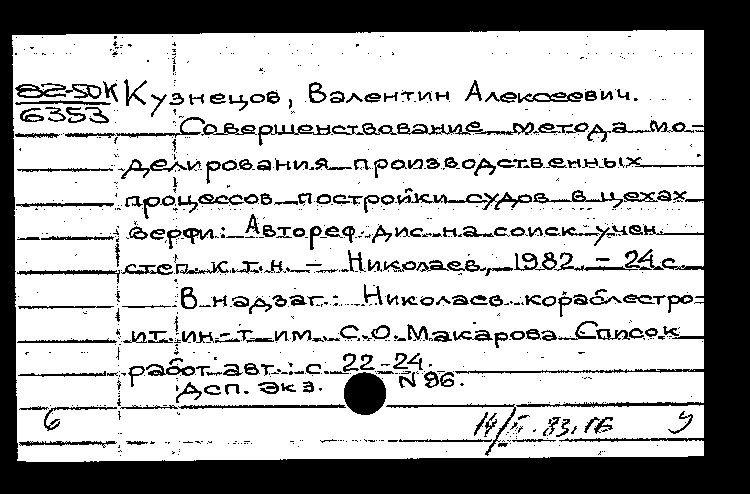 82-50К
6353
Кузнецов, Валентин Алексеевич.
Совершенствование метода мо-
делирования производственных
процессов постройки судов в цехах
верфи: Автореф. дис. на соиск. учен.
степ. к.т.н. - Николаев, 1982. - 24 с.
В надзаг.: Николаев. кораблестро-
ит. ин-т им. С.О. Макарова. Список
работ авт.: с. 22-24.
ДСП. Экз. N 96.
6 14/II. 83. ГБ У